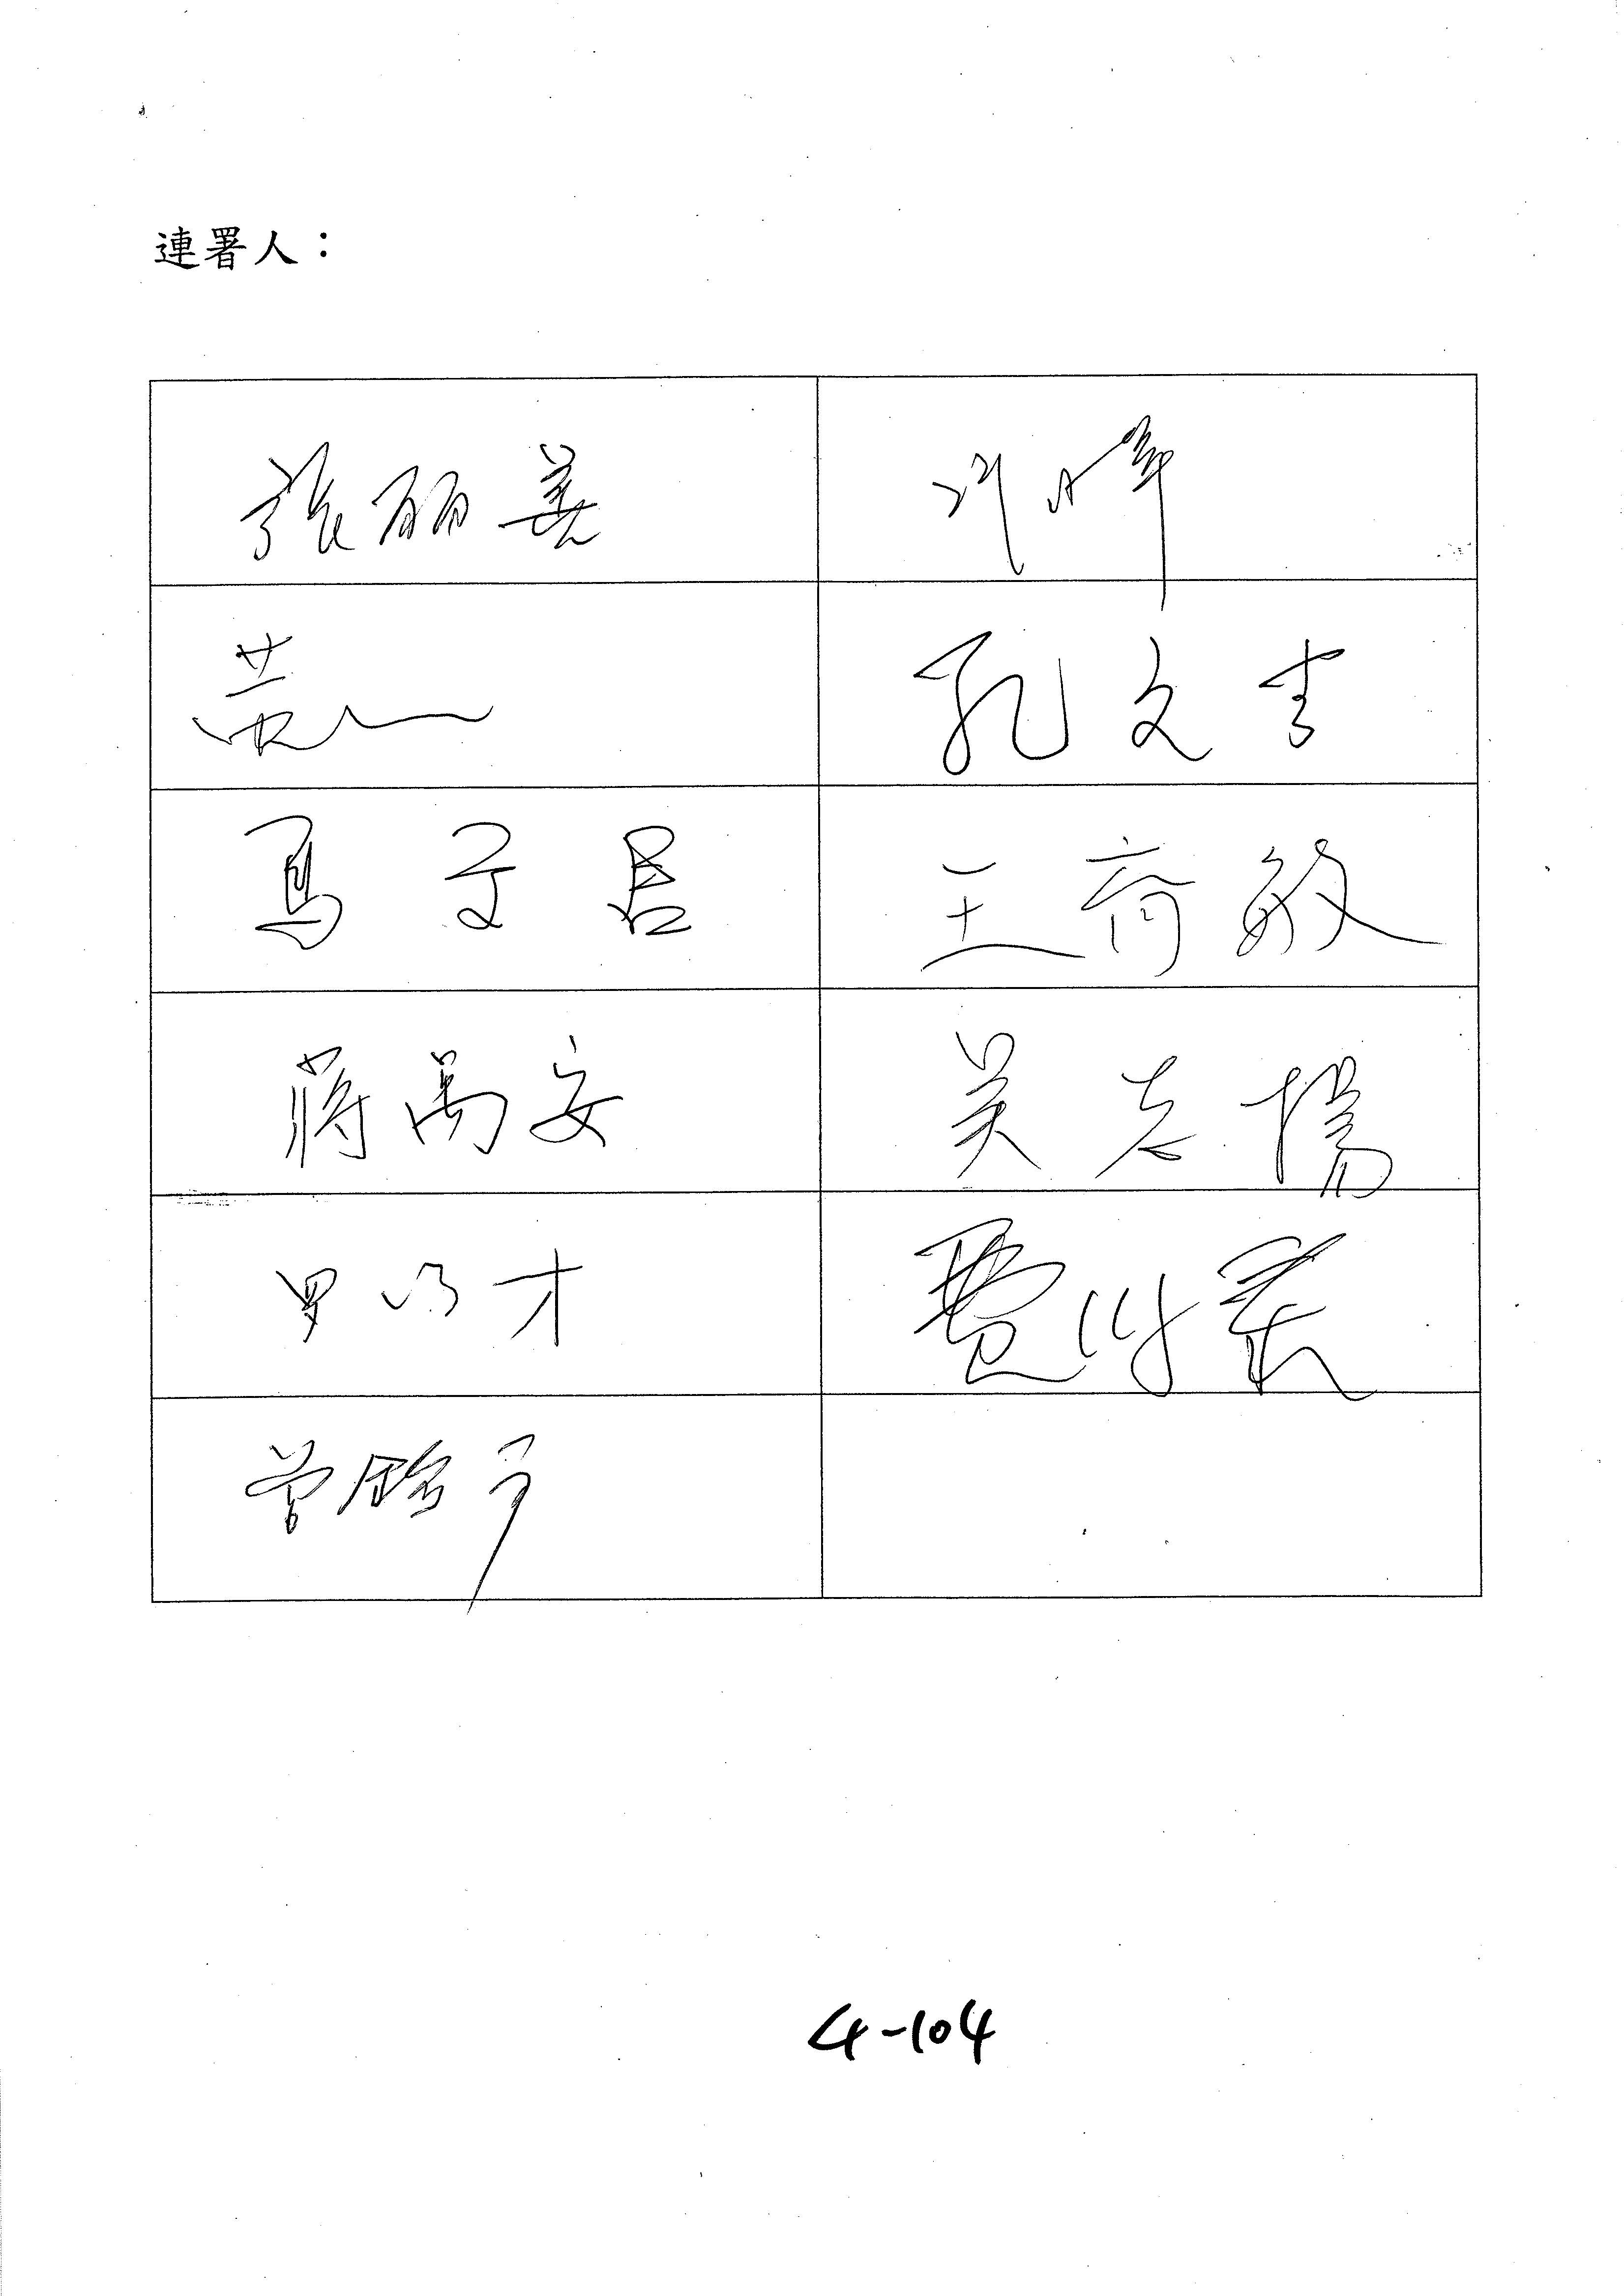 連署人：
張丽善
孔文吉
馬文君
王育敏
蔣萬安
吳志揚
罗明才
費鴻泰
曾銘宗
4-104